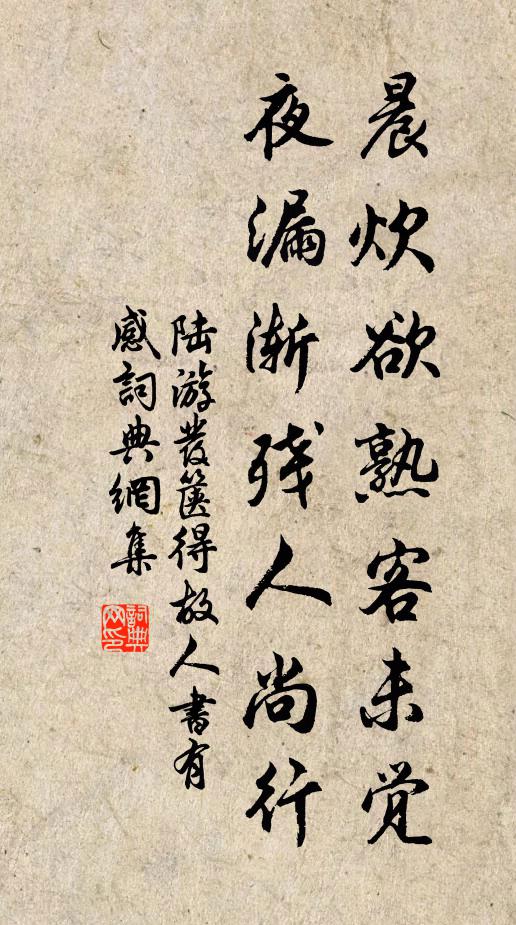 晨炊欲熟客未觉
夜漏渐残人尚行
陆游发箧得故人書有
感詞典網集
詞典
网印